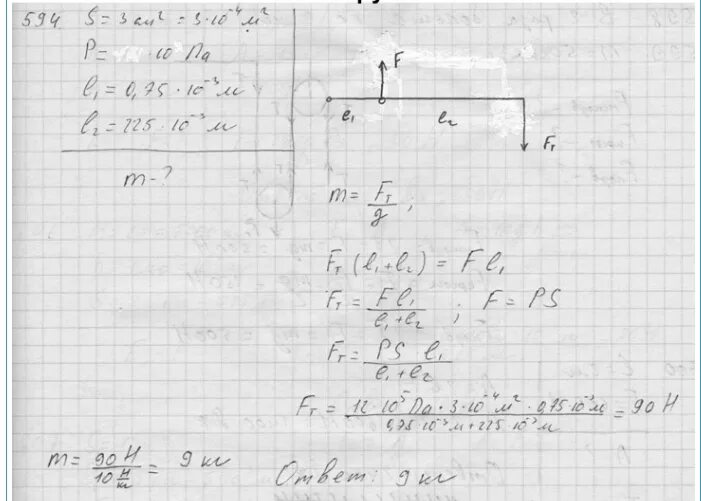 594. S = 3 см² = 3·10⁻⁴ м²
P = ·10⁵ Па
l₁ = 0,75·10⁻³ м
l₂ = 225·10⁻³ м
m - ?
F
l₁ l₂
Fт
m = Fт / g ;
Fт (l₁ + l₂) = F l₁
Fт = F l₁ / (l₁ + l₂) ; F = PS
Fт = PS l₁ / (l₁ + l₂)
Fт = 12·10⁵ Па · 3·10⁻⁴ м² · 0,75·10⁻³ м / (0,75·10⁻³ м + 225·10⁻³ м) = 90 Н
m = 90 Н / 10 Н/кг = 9 кг
Ответ: 9 кг